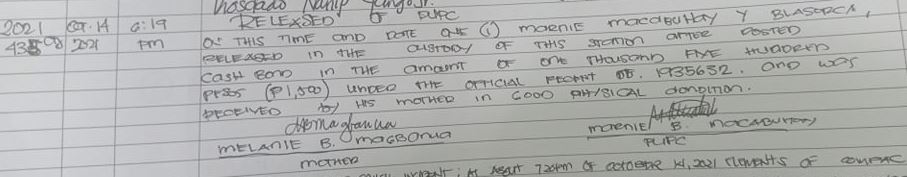 Rosgado Nanip Jungo Jr.
2021 Oct. 14 6:19 RELEASED OF PUPC
4358 2021 PM AT THIS TIME AND DATE ONE (1) MARNIE MACABUHAY Y BLASORCA,
RELEASED IN THE CUSTODY OF THIS STATION AFTER POSTED
CASH BOND IN THE AMOUNT OF ONE THOUSAND FIVE HUNDRED
PESOS (₱1,500) UNDER THE OFFICIAL RECEIPT OR. 1935632. AND WAS
RECEIVED BY HIS MOTHER IN GOOD PHYSICAL CONDITION.
MELANIE B. MAGBONUA MARNIE B. MACABUHAY
MOTHER PUPC
: AT ABOUT 720PM OF OCTOBER 14, 2021 ELEMENTS OF